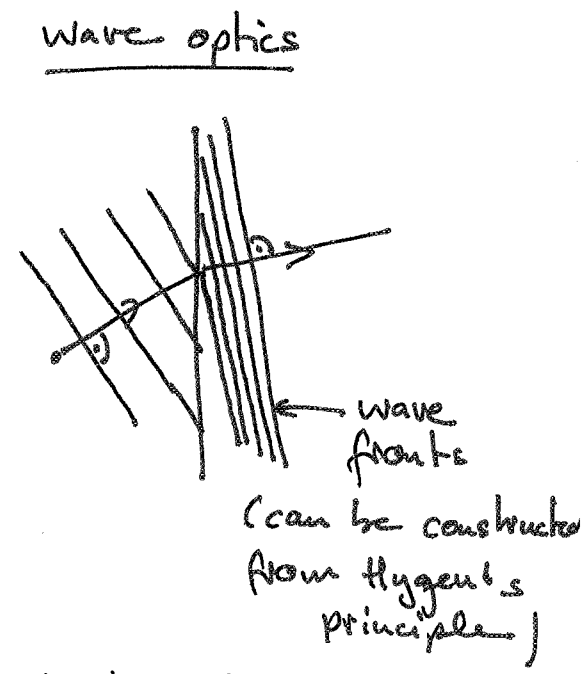 wave optics
wave
fronts
(can be constructed
from Hygen's
principle)